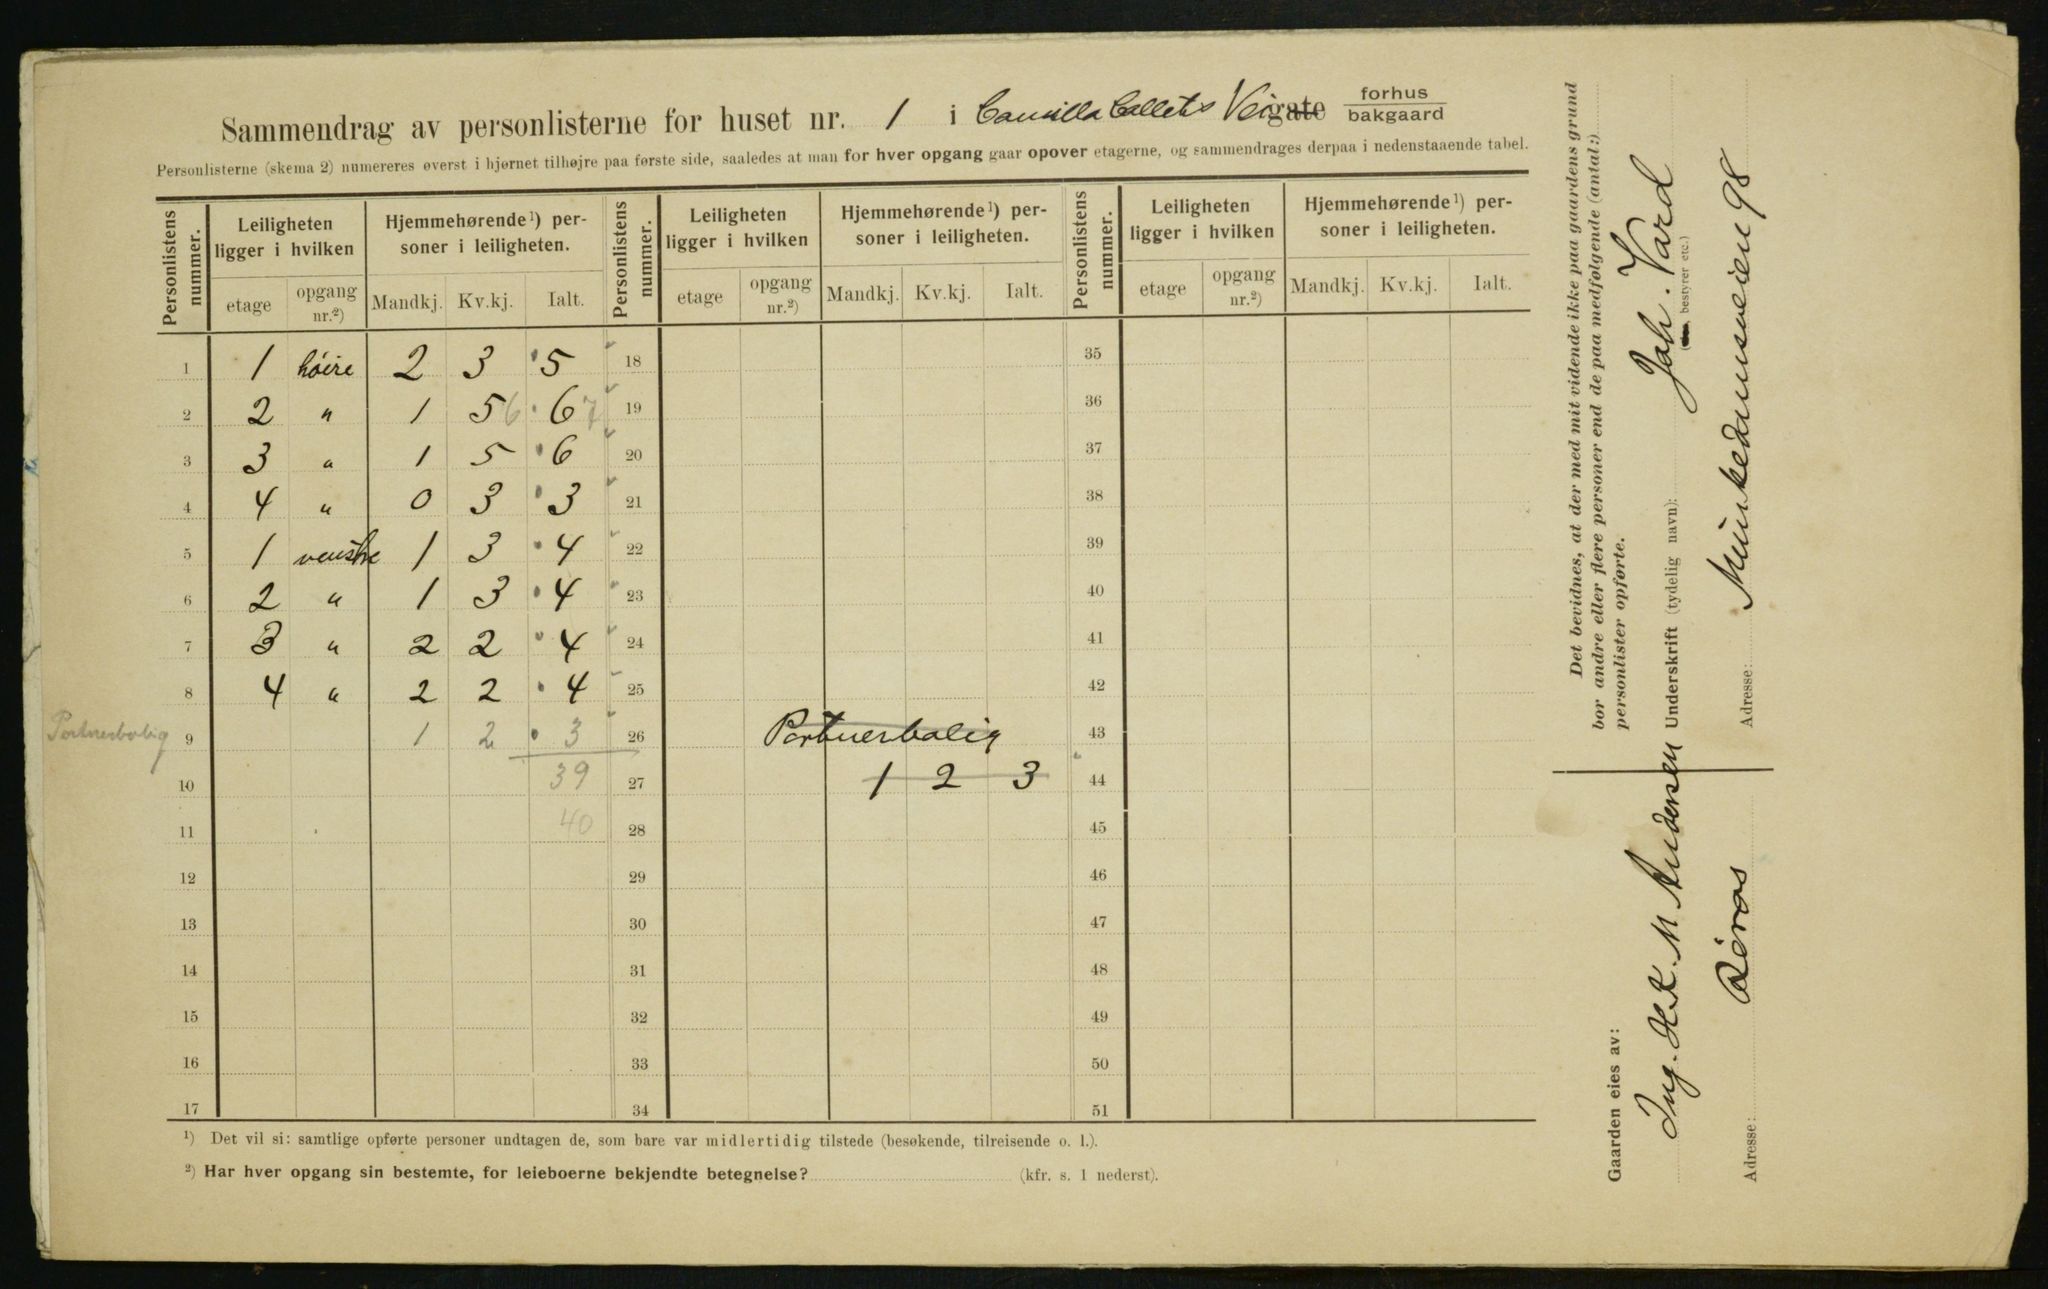 Sammendrag av personlisterne for huset nr. 1 i Camilla Colletts Veigate forhus bakgaard
Personlisterne (skema 2) numereres øverst i hjørnet tilhøjre paa første side, saaledes at man for hver opgang gaar opover etagerne, og sammendrages derpaa i nedenstaaende tabel.
Personlistens nummer. Leiligheten ligger i hvilken Hjemmehørende¹) personer i leiligheten. Personlistens nummer. Leiligheten ligger i hvilken Hjemmehørende¹) personer i leiligheten. Personlistens nummer. Leiligheten ligger i hvilken Hjemmehørende¹) personer i leiligheten.
etage opgang nr.²) Mandkj. Kv.kj. Ialt. etage opgang nr.²) Mandkj. Kv.kj. Ialt. etage opgang nr.²) Mandkj. Kv.kj. Ialt.
1 1 höire 2 3 5 18 35
2 2 " 1 5 6 6 7 19 36
3 3 " 1 5 6 20 37
4 4 " 0 3 3 21 38
5 1 venstre 1 3 4 22 39
6 2 " 1 3 4 23 40
7 3 " 2 2 4 24 41
8 4 " 2 2 4 25 42
Portnerbolig 9 1 2 3 26 Portnerbolig 43
10 39 27 1 2 3 44
11 40 28 45
12 29 46
13 30 47
14 31 48
15 32 49
16 33 50
17 34 51
¹) Det vil si: samtlige opførte personer undtagen de, som bare var midlertidig tilstede (besøkende, tilreisende o. l.).
²) Har hver opgang sin bestemte, for leieboerne bekjendte betegnelse? (kfr. s. 1 nederst).
Det bevidnes, at der med mit vidende ikke paa gaardens grund
bor andre eller flere personer end de paa medfølgende (antal:)
personlister opførte.
Underskrift (tydelig navn): Joh. Vard
(, bestyrer etc.)
Adresse: Munkedamsveien 98
Gaarden eies av:
Ing. H. K. M. Andersen
Adresse: Röros